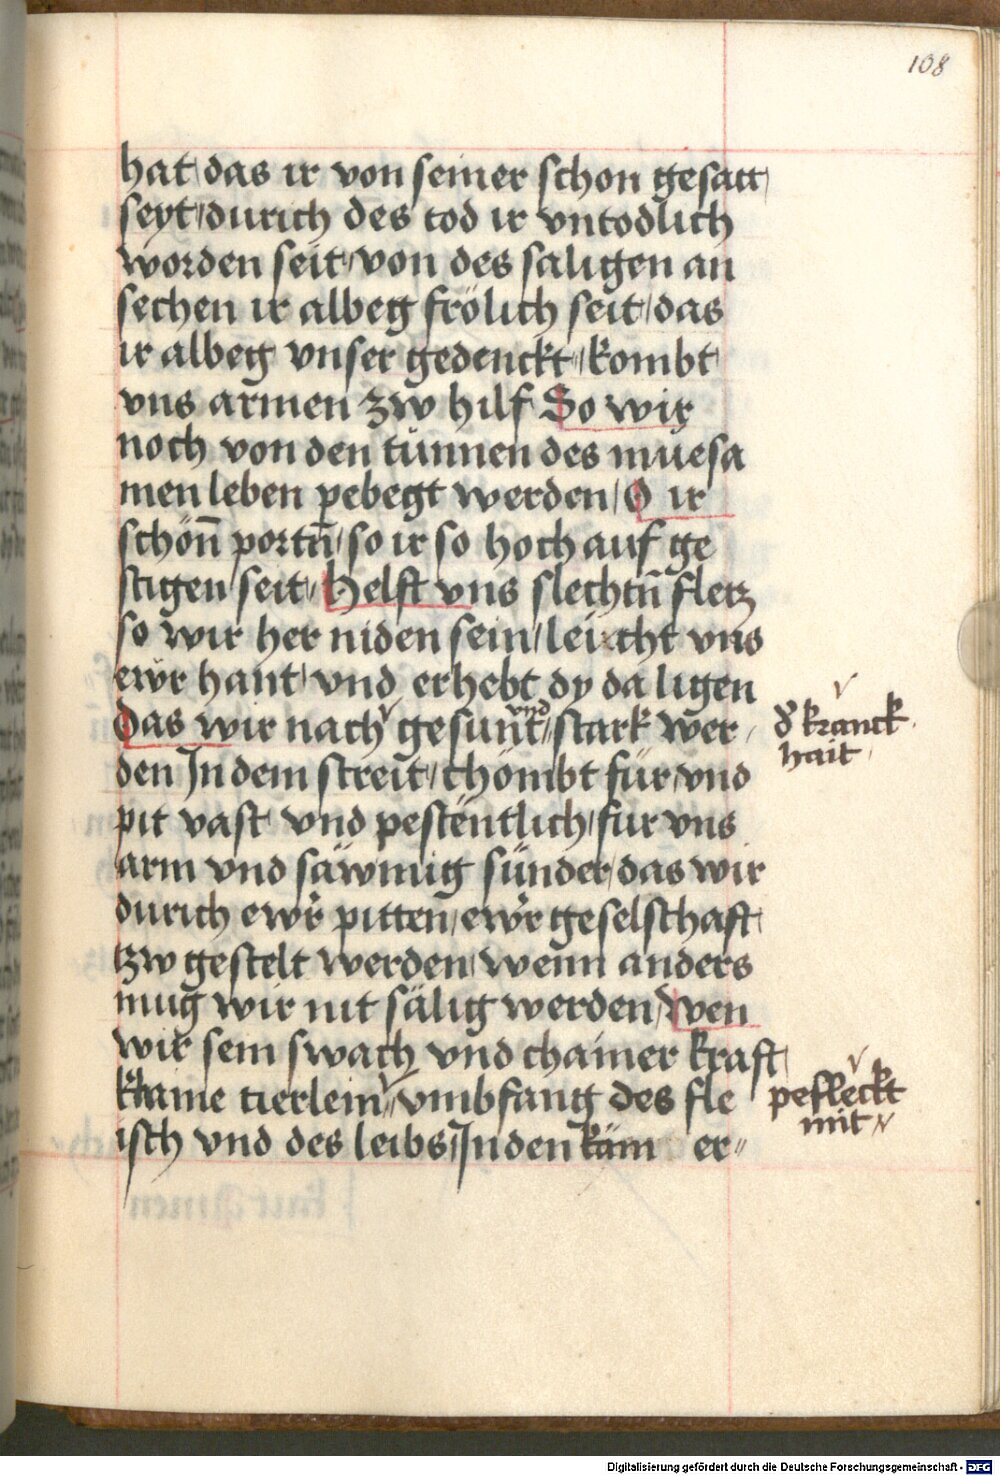 108
hat das ir von seiner schon gesatt
seyt durich des tod ir vntodlich
worden seit von des saligen an
sechen ir albeg frölich seit das
ir albeg vnser gedenckt kombt
vns armen zw hilf So wir
noch von den tünnen des muesa
men leben pebegt werden O ir
schön̄ portn̄ so ir so hoch auf ge
stigen seit Helft vns slechtn̄ fletz
so wir her niden sein leicht vns
ewr hant vnd erhebt dy da ligen
Das wir nach gesunt vnd stark wer
d kranck
hait
den Jn dem streit chömbt für vnd
pit vast vnd pestëntlich für vns
arm vnd säwmig sünder das wir
durich ewr pitten ewr geselschaft
tzw gestelt werden wenn anders
mug wir nit sälig werden Wen
wir sein swach vnd chainer kraft
tierlein vmbfang des fle
pefleckt
mit
isch vnd des leibs Jn den kam er
Digitalisierung gefördert durch die Deutsche Forschungsgemeinschaft - DFG